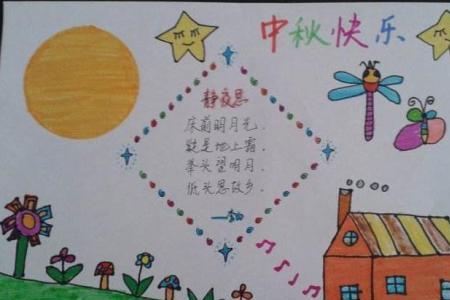 中秋快乐
静夜思
床前明月光.
疑是地上霜.
举头望明月.
低头思故乡.